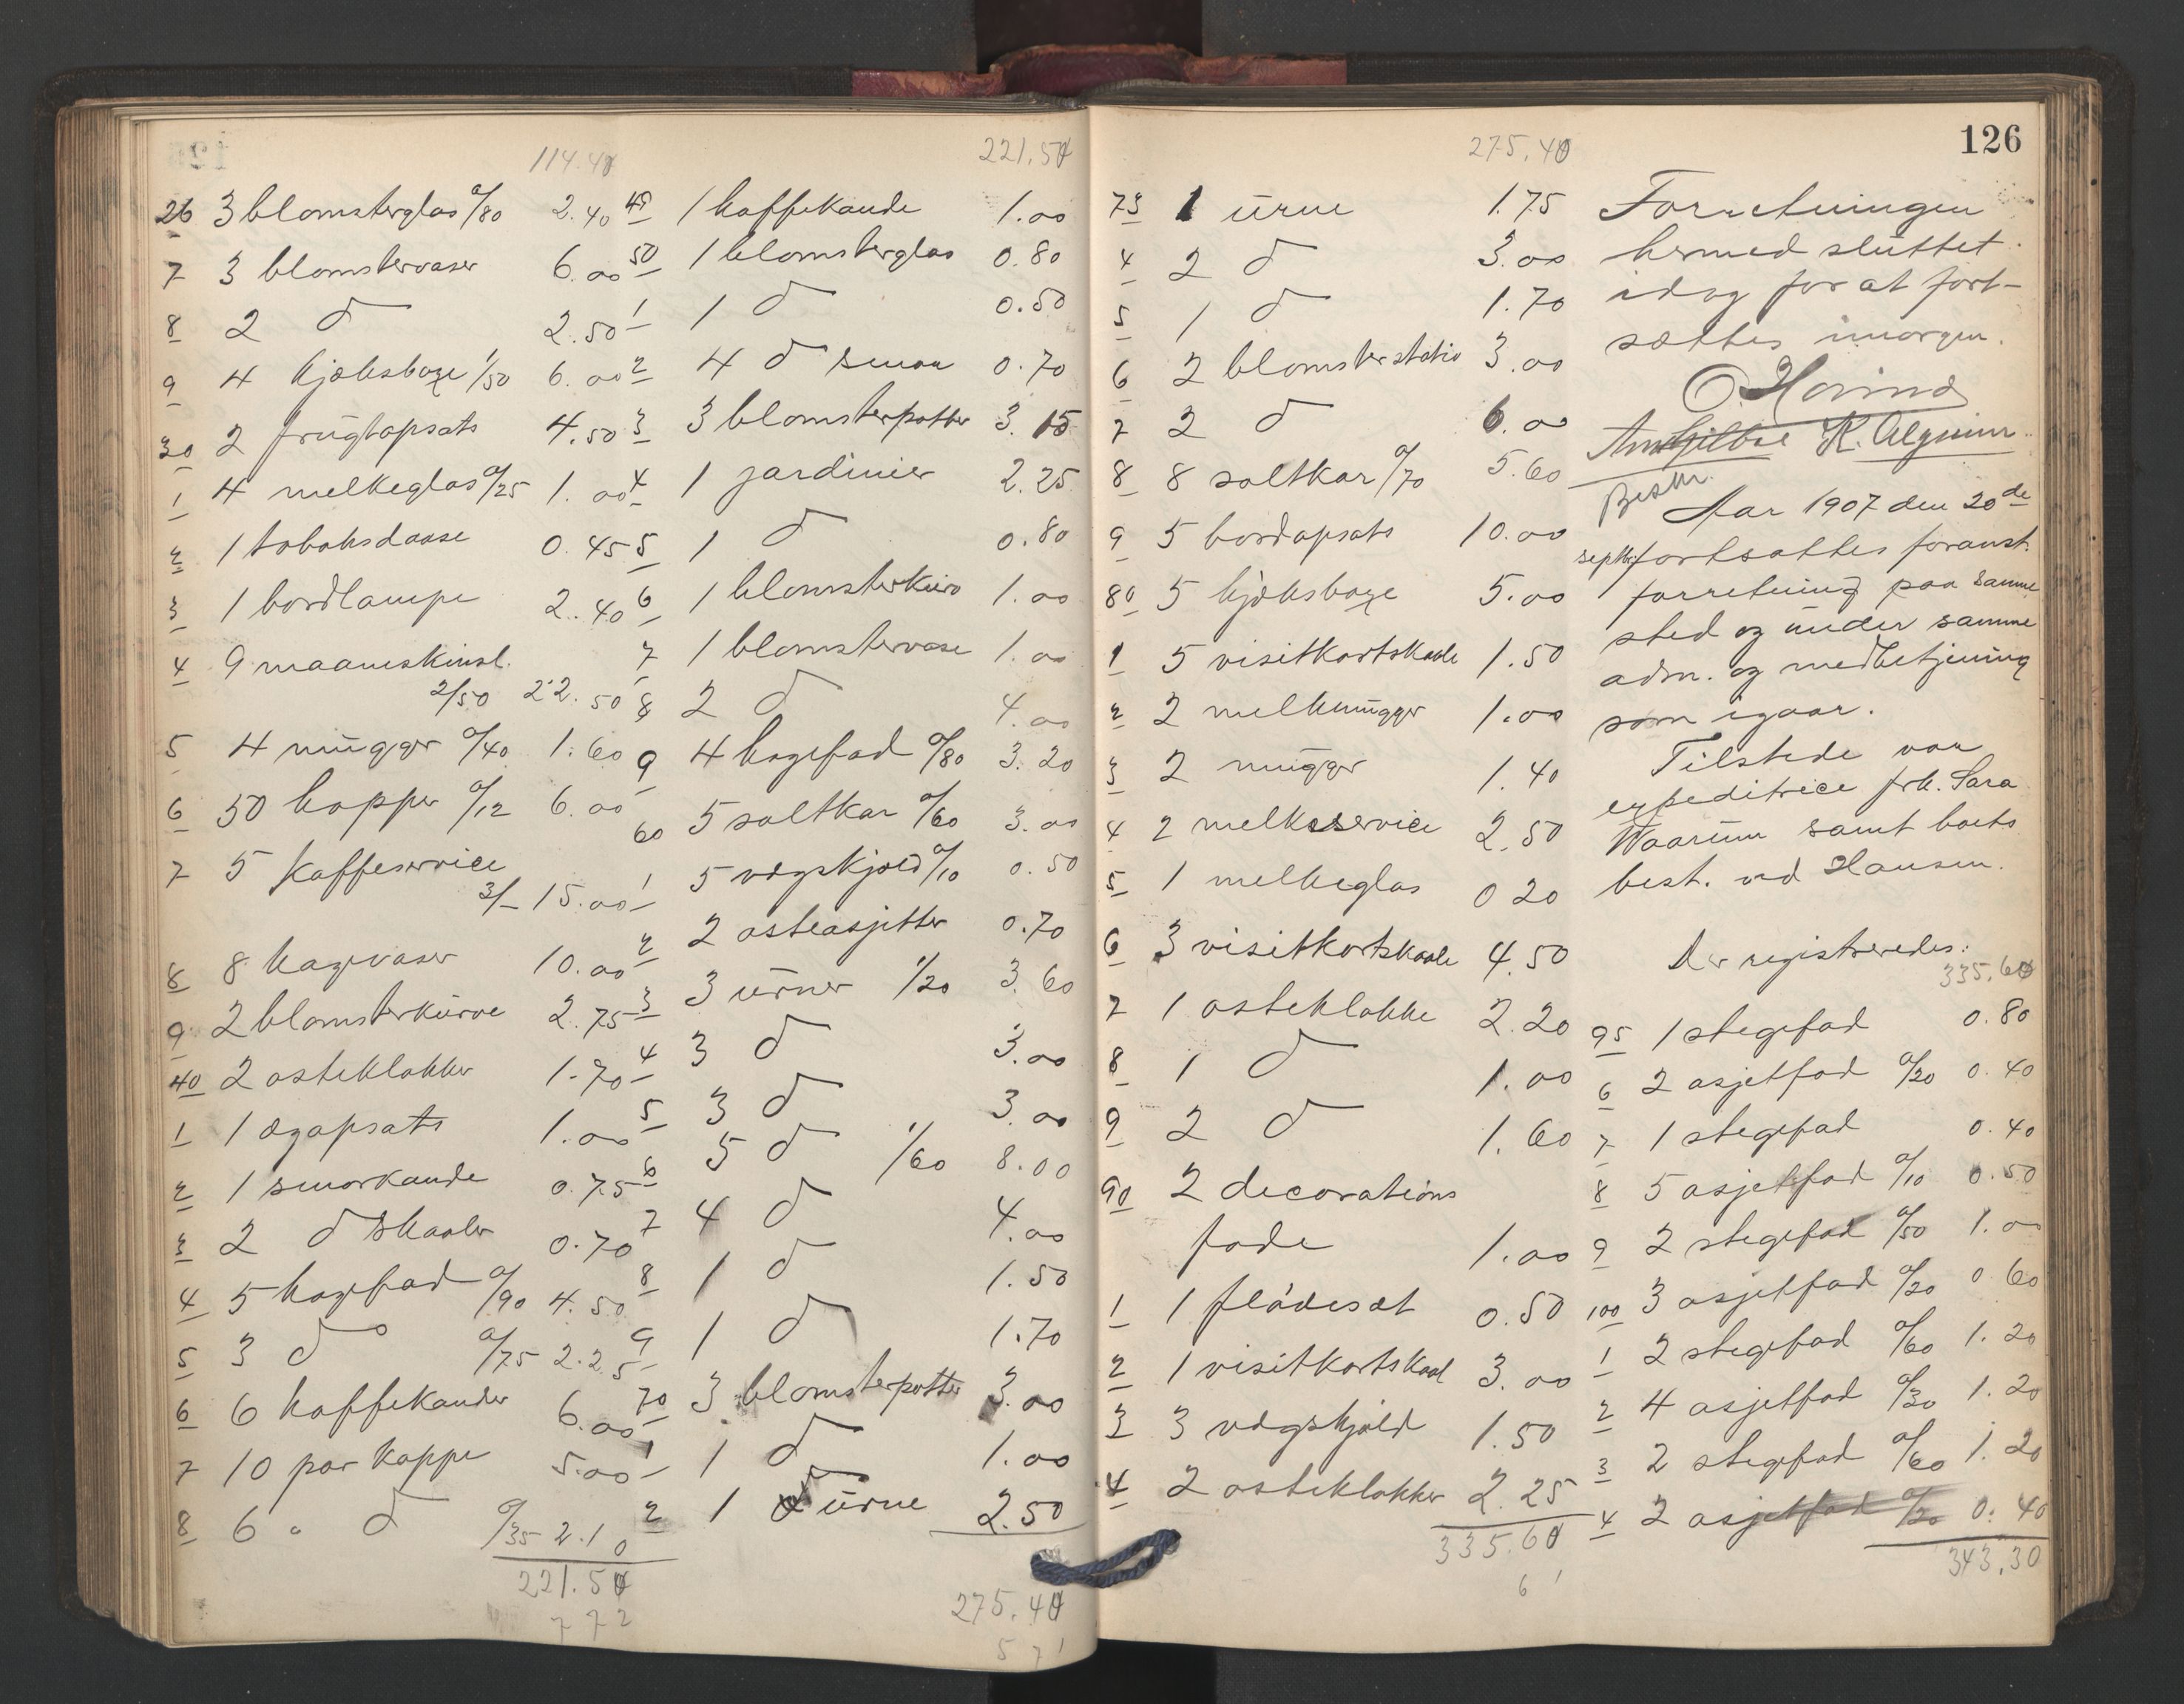 114.40
26 3 blomsterglas 0/80 2.40
7 3 blomstervaser 6.00
8 2 do 2.50
9 4 kjæksboxe 1/50 6.00
30 2 frugtopsats 4.50
1 4 melkeglas 0/25 1.00
2 1 tobaksdaase 0.45
3 1 bordlampe 2.40
4 9 maaneskinsl.
2/50 22.50
5 4 mugger 0/40 1.60
6 50 kopper 0/12 6.00
7 5 kaffeservice
3/- 15.00
8 8 kagevaser 10.00
9 2 blomsterkurve 2.75
40 2 osteklokker 1.70
1 1 ægopsats 1.00
2 1 smørkande 0.75
3 2 do skaaler 0.70
4 5 kagefad 0/90 4.50
5 3 do 0/75 2.25
6 6 kaffekander 6.00
7 10 par kopper 5.00
8 6 " do 0/35 2.10
221.50
772
221.50
49 1 kaffekande 1.00
50 1 blomsterglas 0.80
1 1 do 0.50
2 4 do smaa 0.70
3 3 blomsterpotter 3.15
4 1 jardinier 2.25
5 1 do 0.80
6 1 blomsterkurv 1.00
7 1 blomstervase 1.00
8 2 do 4.00
9 4 kagefad 0/80 3.20
60 5 saltkar 0/60 3.00
1 5 vægskjold 0/10 0.50
2 2 osteasjetter 0.70
3 3 urner 1/20 3.60
4 3 do 3.00
5 3 do 3.00
6 5 do 1/60 8.00
7 4 do 4.00
8 1 do 1.50
9 1 do 1.70
70 3 blomsterpotter 3.00
1 1 do 1.00
2 1 urne 2.50
275.40
571
126
275.40
73 1 urne 1.75
4 2 do 3.00
5 1 do 1.70
6 2 blomsterstativ 3.00
7 2 do 6.00
8 8 saltkar 0/70 5.60
9 5 bordopsats 10.00
80 5 kjæksboxe 5.00
1 5 visitkortskaale 1.50
2 2 melkemugger 1.00
3 2 mugger 1.40
4 2 melkeservice 2.50
5 1 melkeglas 0 20
6 3 visitkortskaale 4.50
7 1 osteklokke 2.20
8 1 do 1.00
9 2 do 1.60
90 2 decorations
fade 1.00
1 1 flødesæt 0.50
2 1 visitkortskaal 3.00
3 3 vægskjold 1.50
4 2 osteklokker 2.25
335.60
6 1
Forretningen
hermed sluttet
idag for at fort-
sættes imorgen.
O. Hovind
Aar 1907 den 20de
septbr. fortsattes foranst.
forretning paa samme
sted og under samme
adm. og medbetjening
som igaar.
Tilstede var
expeditrice frk. Sara
Waarum samt boets
best. ved Hansen.
Der registreredes:
335.60
95 1 stegefad 0.80
6 2 asjetfad 0/20 0.40
7 1 stegefad 0.40
8 5 asjetfad 0/10 0.50
9 2 stegefad 0/50 1.00
100 3 asjetfad 0/20 0.60
1 2 stegefad 0/60 1.20
2 4 asjetfad 0/30 1.20
3 2 stegefad 0/60 1.20
4 2 asjetfad 0/20 0.40
343.30